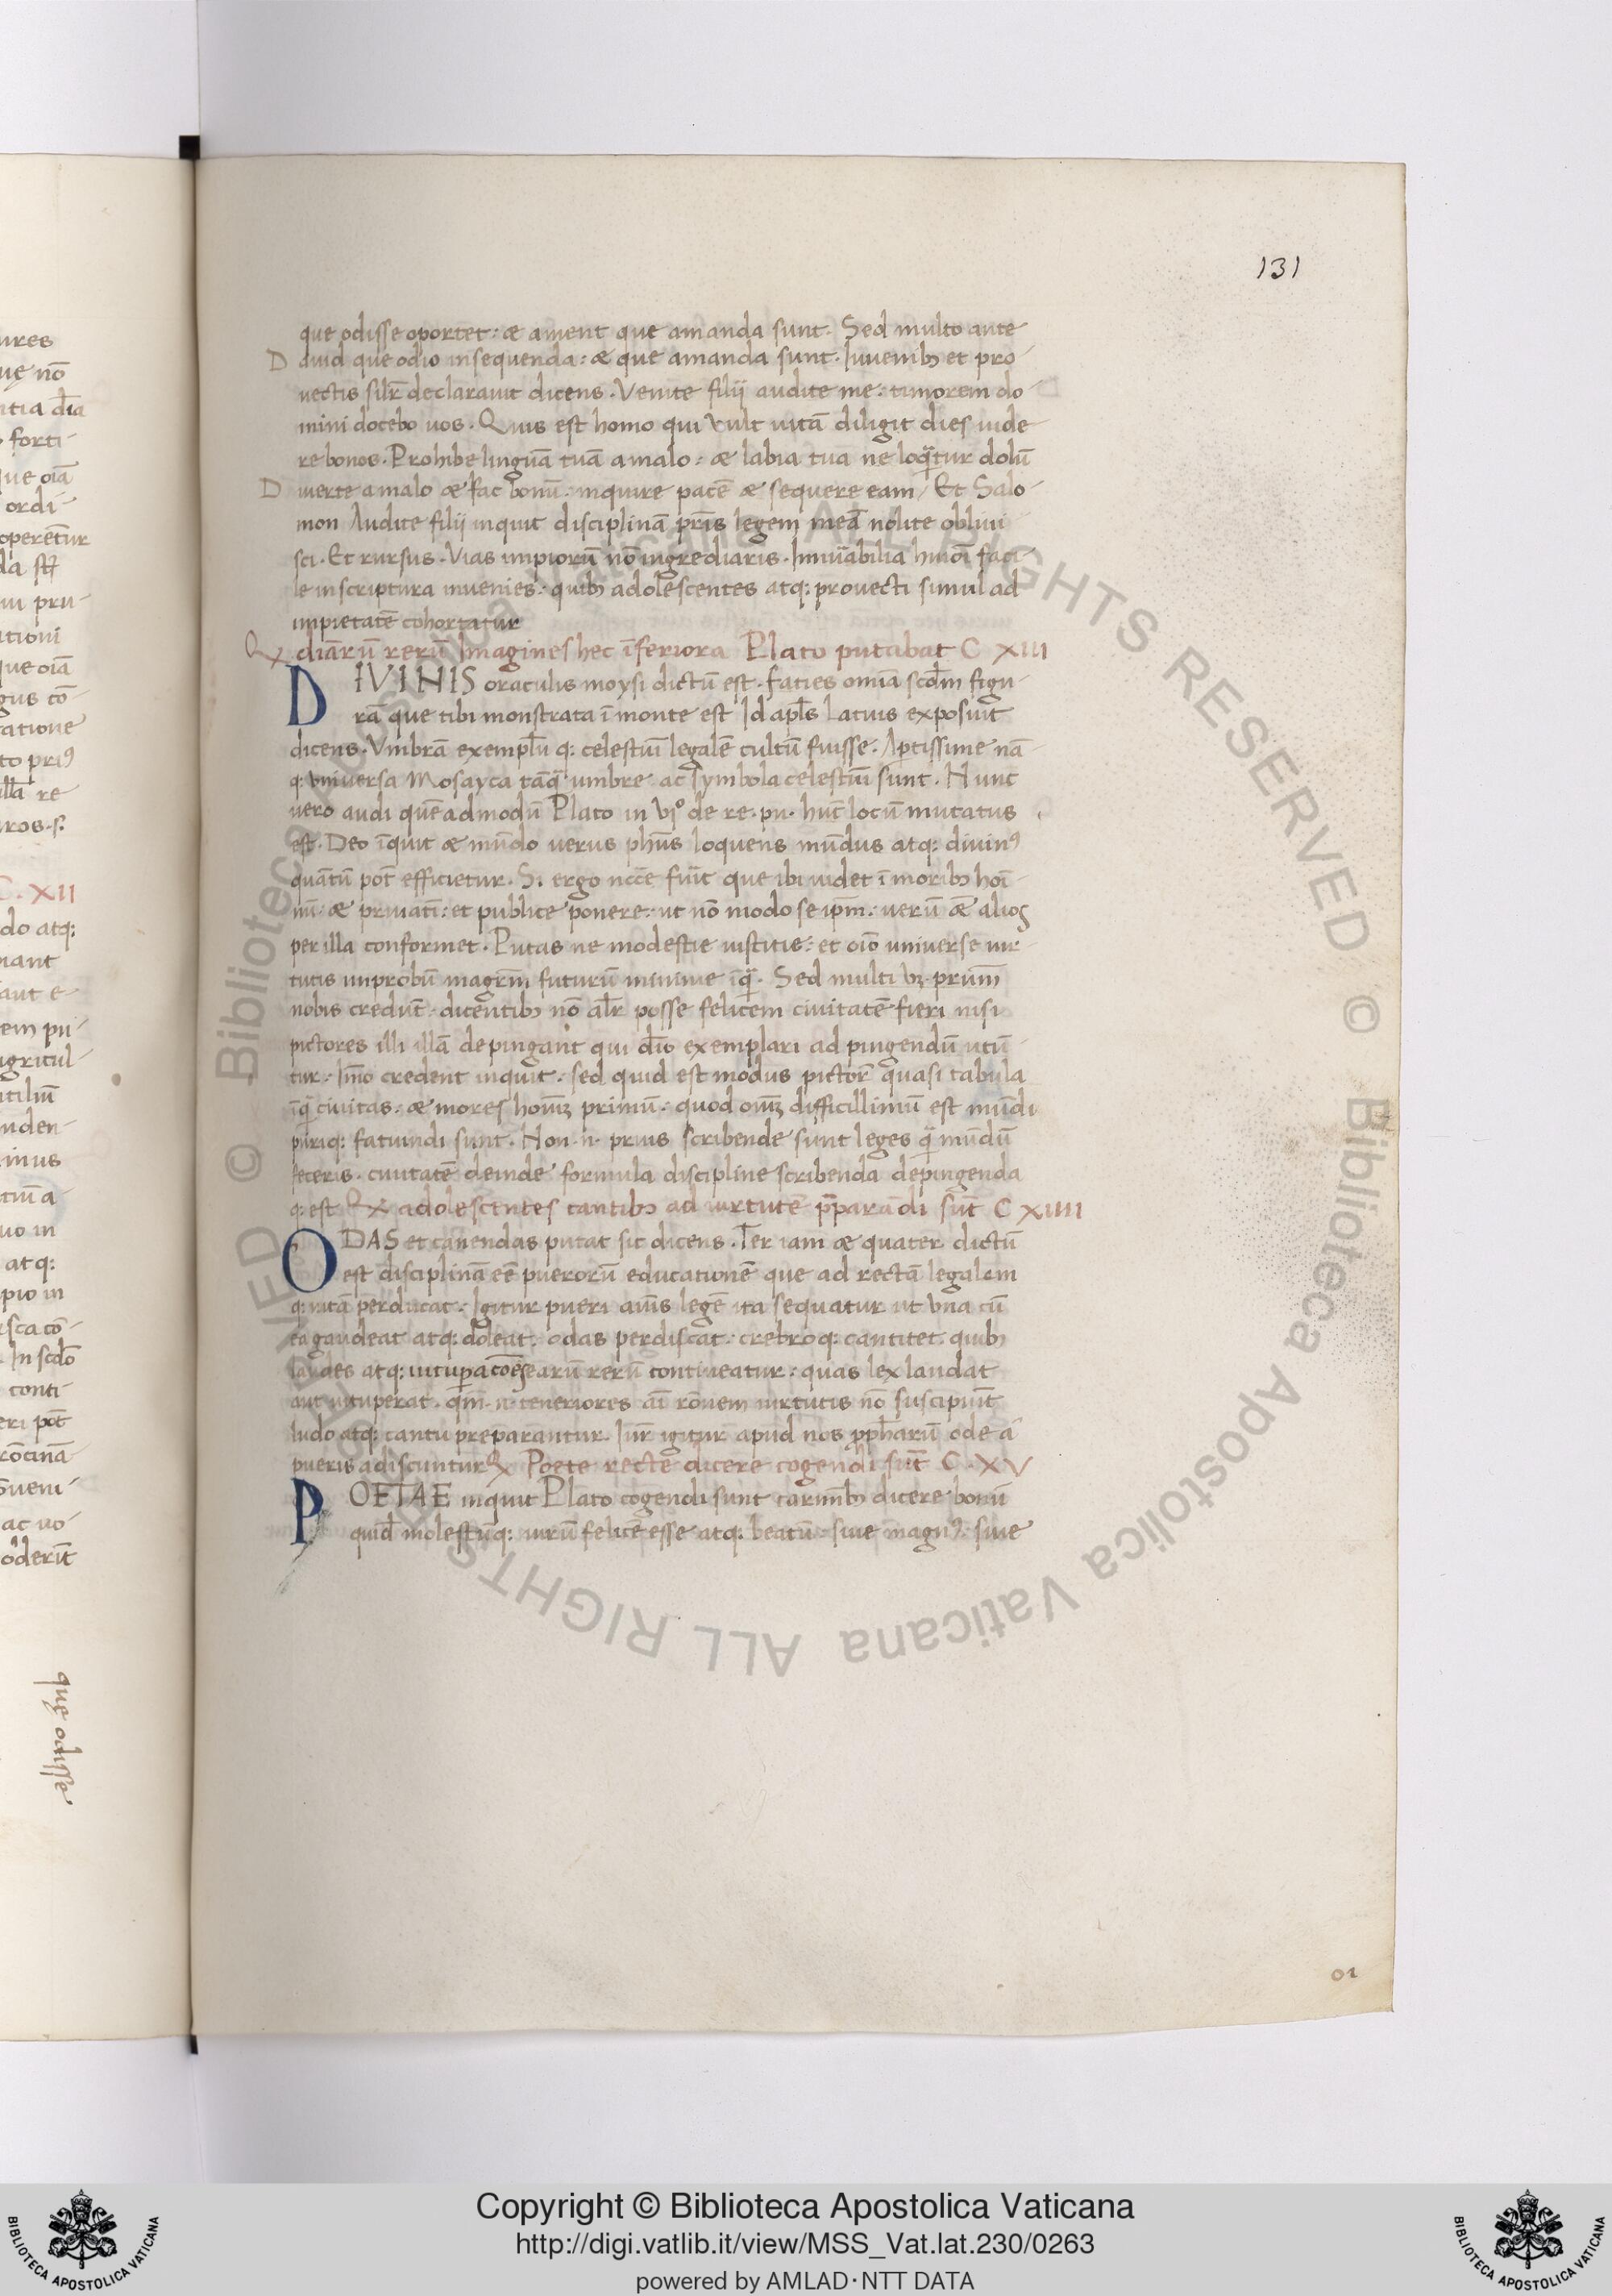 131
que odisse oportet: æ ament que amanda sunt. Sed multo ante
D auid que odio insequenda: æ que amanda sunt. Iuuenibꝫ et pro-
uectis silr̄ declarauit dicens. Venite filij audite me: timorem do-
mini docebo uos. Quis est homo qui vult uitā diligit dies uide-
re bonos. Prohibe linguā tuā a malo: æ labia tua ne loqͣtur dolū
D iuerte a malo æ fac bonū: inquire pacē æ sequere eam / Et Salo-
mon Audite filij inquit disciplinā pr̄is legem meā nolite obliui
sci. Et rursus. Vias impiorū nō ingrediaris. Innūabilia hmōi faci-
le in scriptura inuenies: quibꝫ adolescentes atq; prouecti simul ad
impietatē cohortatur
Qꝫ diāru rerū Imagines hec īferiora Plato putabat C XIII
DIVINIS oraculis moysi dictū est. facies omīa scdm̄ figu-
rā que tibi monstrata ī monte est Id apls̄ Latius exposuit
dicens. Vmbrā exempl̄u q; celestiuī legalē cultū fuisse. Aptissime nā-
q; vniuersa Mosayca tāqͣ umbre ac symbola celestiuī sunt. Nunc
uero audi quēadmodū Plato in vi° de re. pu. hūc locū mutatus
est. Deo īquit æ mūdo uerus phūs loquens mūdus atq; diuinꝰ
quātū pōt efficietur. Si ergo nccē fuit̄ que ibi uidet ī moribꝫ hoī-
nū: æ priuatī: et publice ponere: ut nō modo se ipm̄: uerū ǣ alios
per illa conformet. Putas ne modestie iustitie: et oīō uniuerse uir-
tutis improbū magrm̄ futurū minime īqͣ. Sed multi uꝫ. prūm
nobis credūt. dicentibꝫ nō alr̄ posse felicem ciuitatē fieri nisi
pictores illi illā depingant qui dīo exemplari ad pingendū utū-
tur. Immo credent inquit: sed quid est modus pictor̄ quasi tabula
īqͣ ciuitas: æ mores homīꝫ primū: quod omīꝫ difficillimū est mūdi
puriq; fatiundi sunt. Non .n. prius scribende sunt leges qͣ mūdū
feceris. ciuitatē deinde formula discipline scribenda depingenda
q; est Qꝫ adolescentes cantibꝫ ad uirtutē pͣparādi sūt C XIIII
ODAS et canendas putat sic dicens. Ter iam æ quater dictū
est disciplinā eē puerorū educationē que ad rectā legalem
q; uitā perducat. Igitur pueri aīus legē ita sequatur ut vna cū
ea gaudeat atq; doleat. odas perdiscat: crebroq; cantitet quibꝫ
laudes atq; uitupacōes earū rerū contineatur: quas lex laudat
aut uituperat. qm̄ .n. teneriores aī rōnem uirtutis nō suscipiūt
ludo atq; cantu preparantur. Iur̄ igitur apud nos pp̄harū ode a
pueris adiscuntur Qꝫ Poete recte dicere cogendi sūt C. XV
POETAE inquit Plato cogendi sunt carmībꝫ dicere bonū
quid molestūq; uirū felicē esse atq; beatū: siue magnꝰ: siue
que odisse
01
Copyright © Biblioteca Apostolica Vaticana
http://digi.vatlib.it/view/MSS_Vat.lat.230/0263
powered by AMLAD·NTT DATA